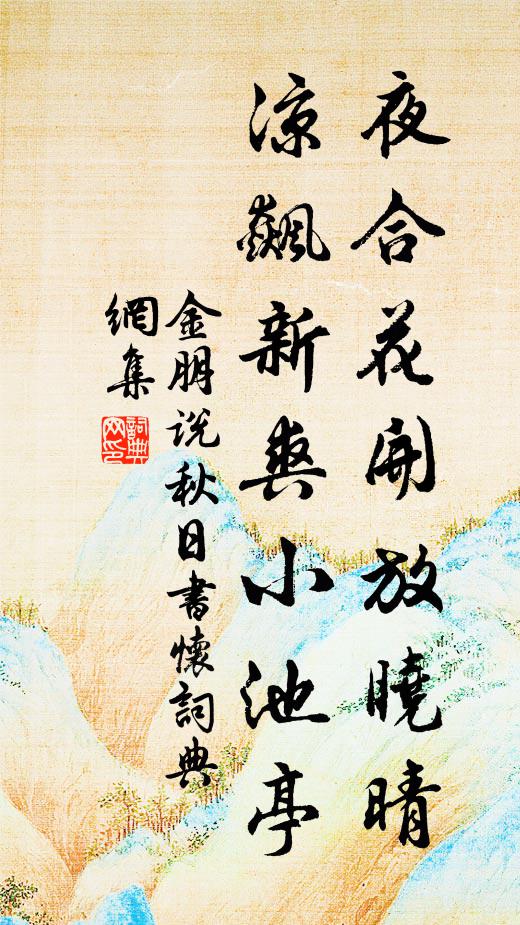 夜合花開放曉晴
涼飆新爽小池亭
金朋说秋日書懷詞典
網集
詞典網印